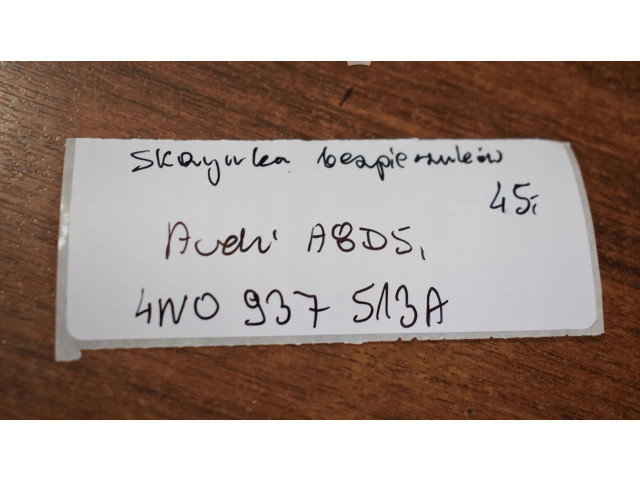 Skrzynka bezpieczników
45,-
Audi A8D5,
4N0 937 513A